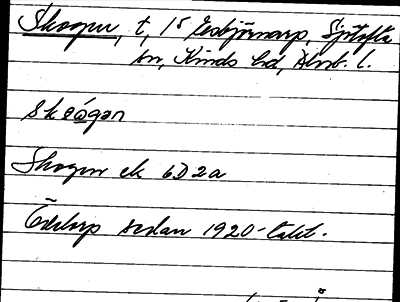 Skogen, t, 15 Esbjörnarp, Sjötofta
sn, Kinds hd, Älvsb. l.
skωógan
Skogen ek 6D2a
Ödetorp sedan 1920-talet.